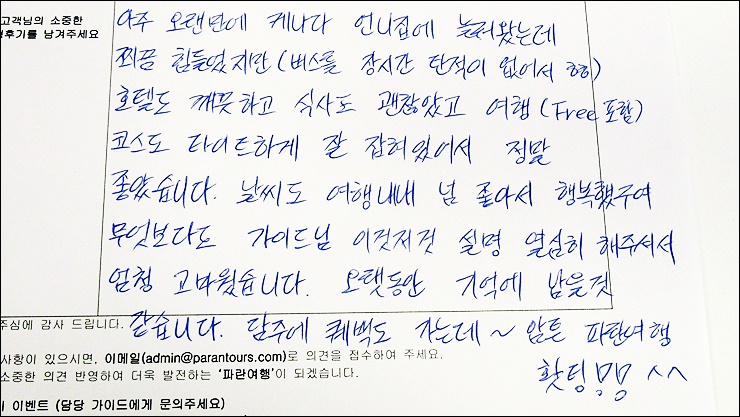 고객님의 소중한
후기를 남겨주세요
아주 오랜만에 케나다 언니집에 놀러왔는데
쬐끔 힘들었지만 (버스를 장시간 탄적이 없어서 ㅎㅎ)
호텔도 깨끗하고 식사도 괜찮았고 여행(Free포함)
코스도 타이트하게 잘 잡혀있어서 정말
좋았습니다. 날씨도 여행내내 넘 좋아서 행복했구여
무엇보다도 가이드님 이것저것 설명 열심히 해주셔서
엄청 고마웠습니다. 오랫동안 기억에 남을것
같습니다. 담주에 퀘백도 가는데~ 암튼 파란여행
홧팅 ^^
주심에 감사 드립니다.
사항이 있으시면, 이메일(admin@parantours.com)로 의견을 접수하여 주세요.
소중한 의견 반영하여 더욱 발전하는 '파란여행'이 되겠습니다.
이벤트 (담당 가이드에게 문의주세요)